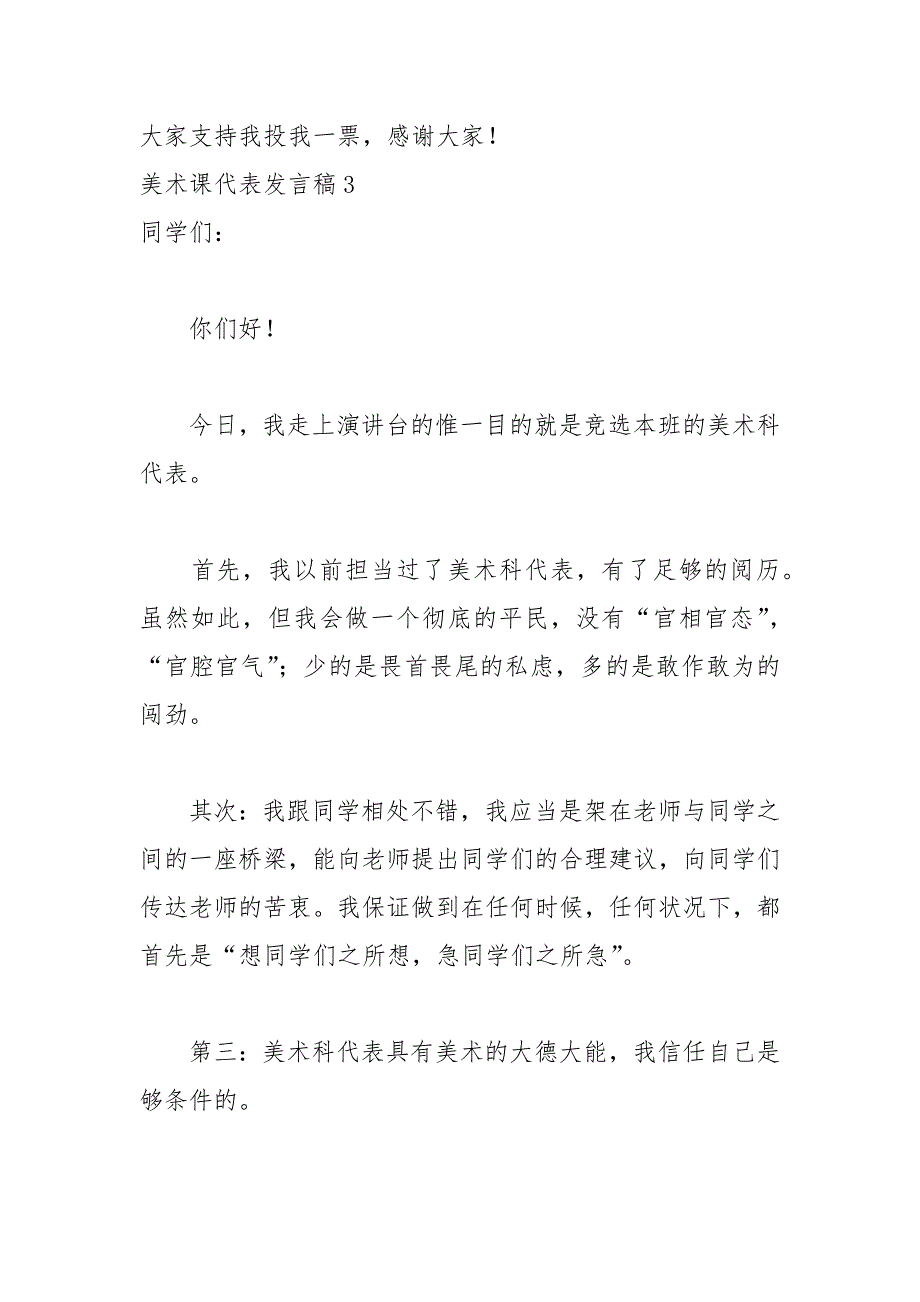 大家支持我投我一票，感谢大家！
美术课代表发言稿 3
同学们：
你们好！
今日，我走上演讲台的惟一目的就是竞选本班的美术科
代表。
首先，我以前担当过了美术科代表，有了足够的阅历。
虽然如此，但我会做一个彻底的平民，没有“官相官态”，
“官腔官气”；少的是畏首畏尾的私虑，多的是敢作敢为的
闯劲。
其次：我跟同学相处不错，我应当是架在老师与同学之
间的一座桥梁，能向老师提出同学们的合理建议，向同学们
传达老师的苦衷。我保证做到在任何时候，任何状况下，都
首先是“想同学们之所想，急同学们之所急”。
第三：美术科代表具有美术的大德大能，我信任自己是
够条件的。